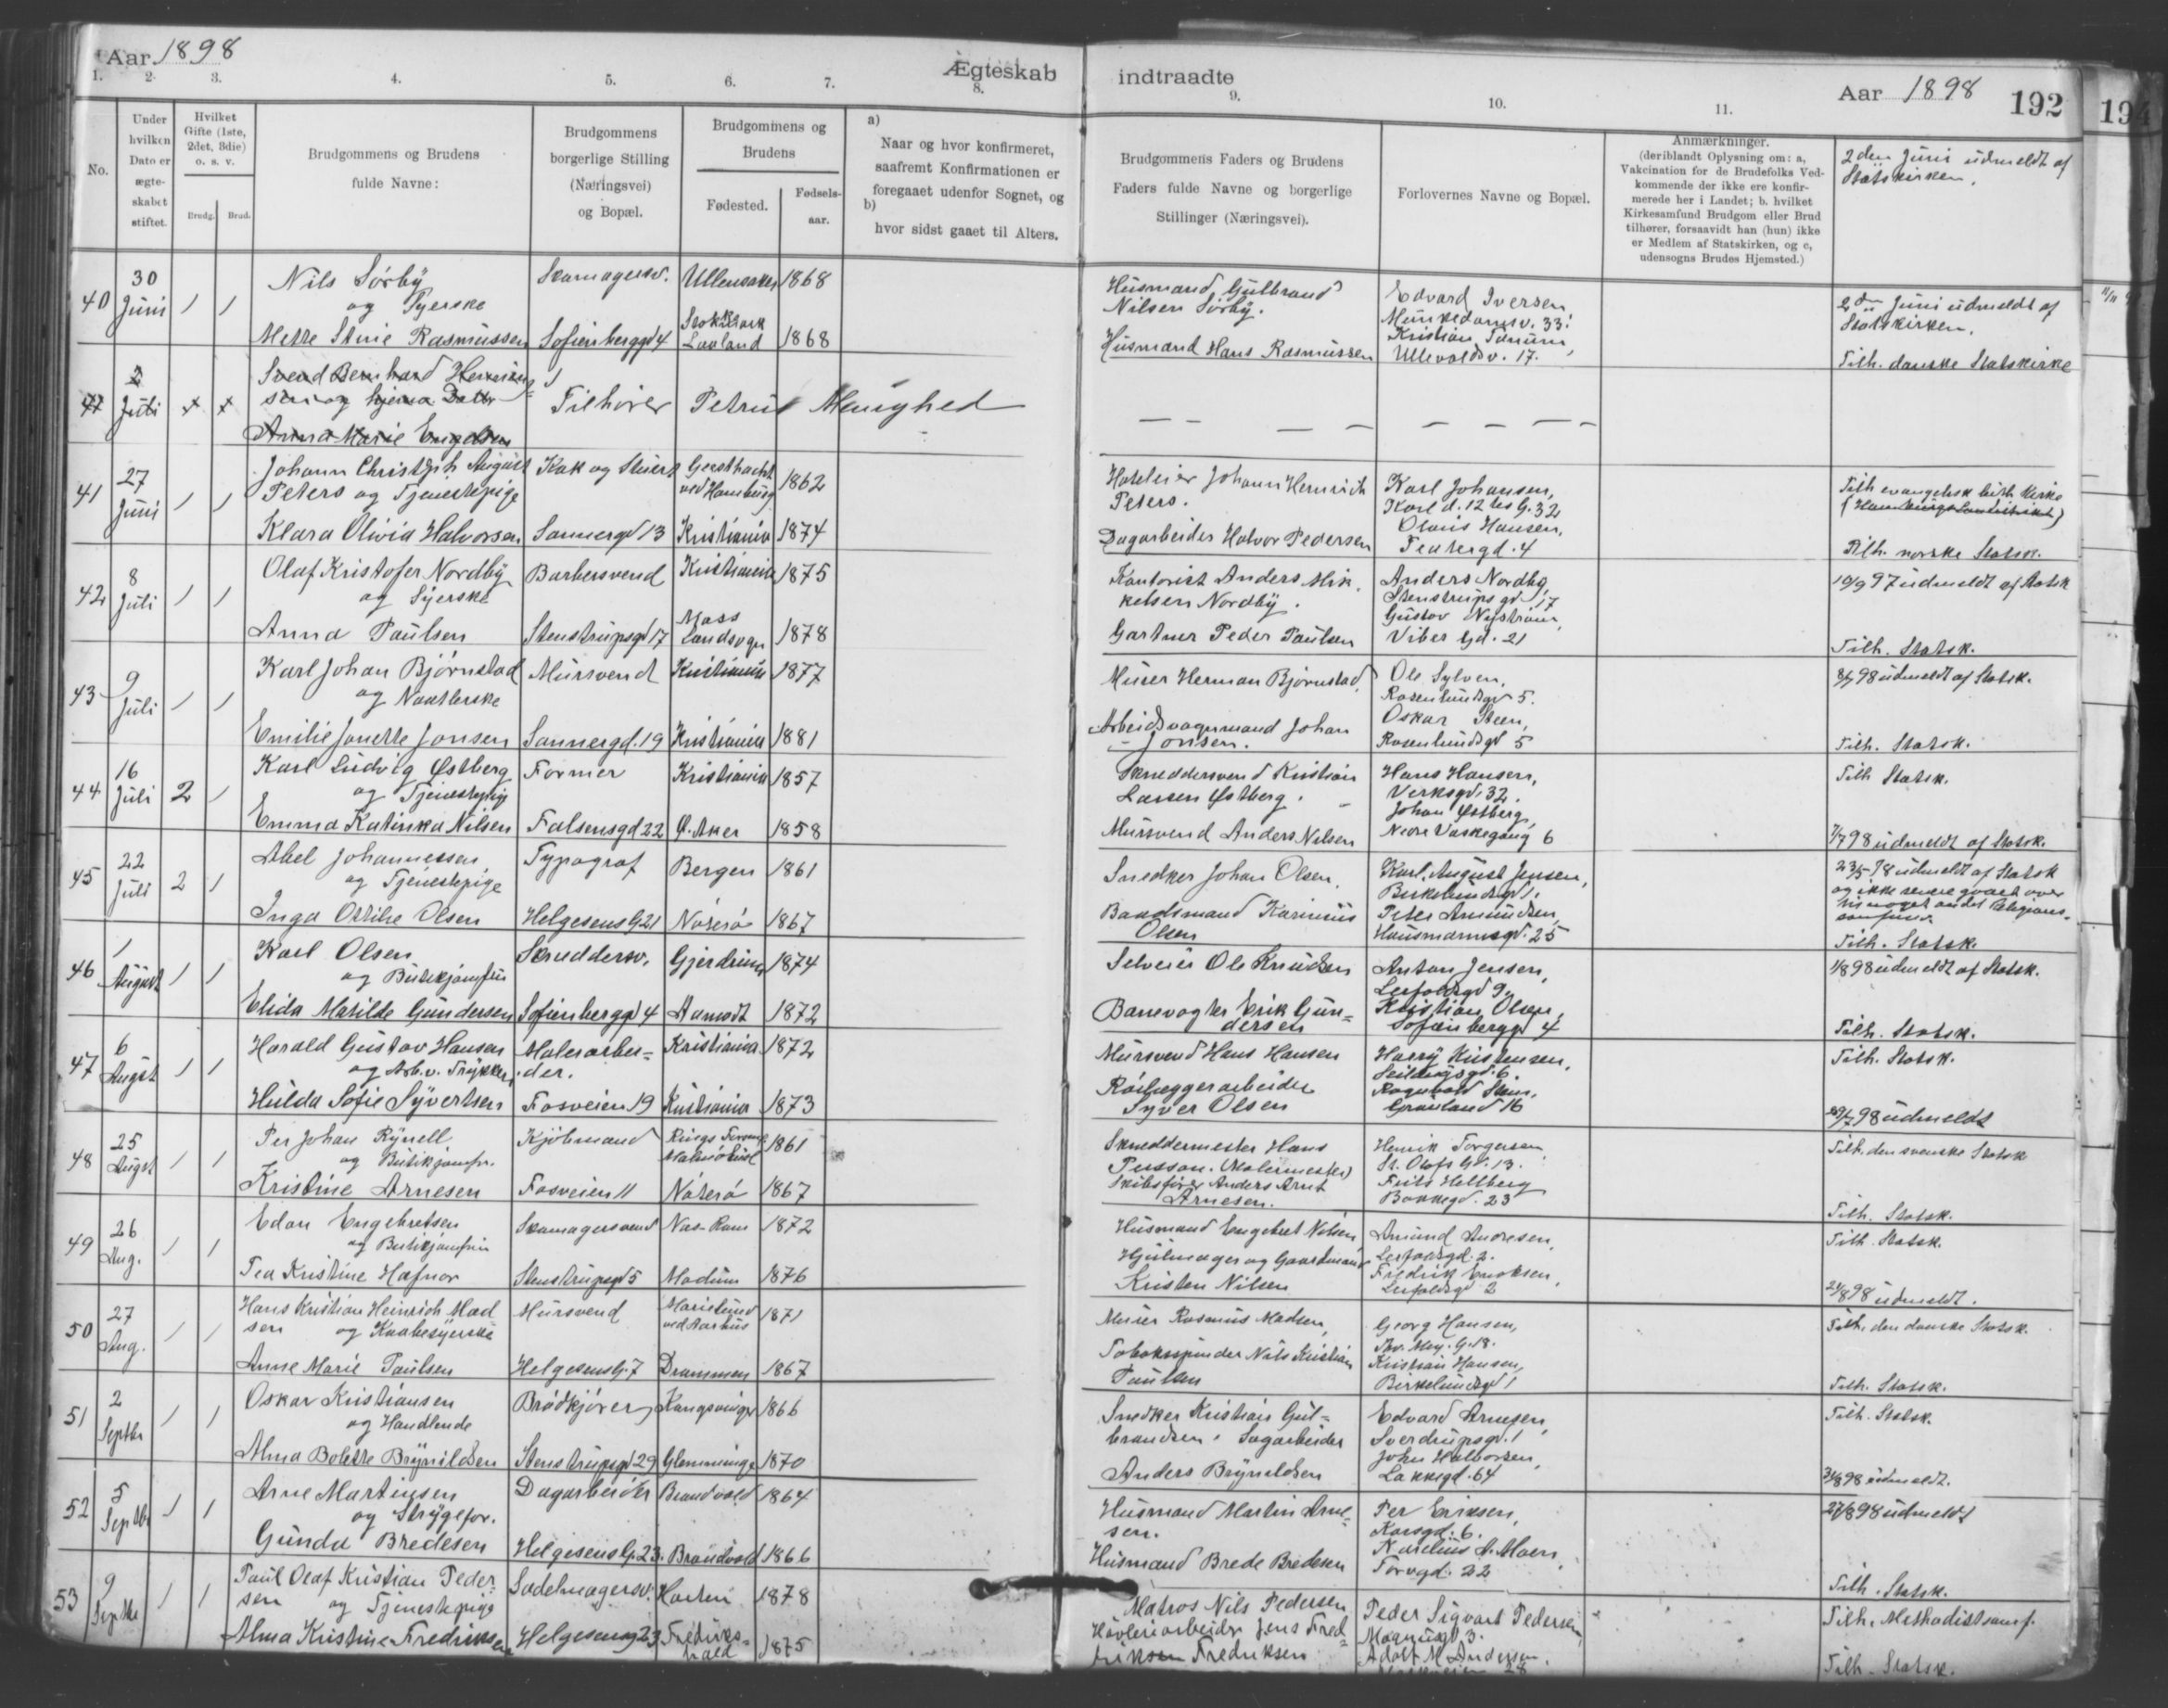 Aar 1898
Ægteskab
indtraadte
Aar 1898
192
194
1. 2. 3. 4. 5. 6. 7. 8. 9. 10. 11.
No.
Under hvilken Dato er ægteskabet stiftet.
Hvilket Gifte (1ste, 2det, 3die) o. s. v.
Brudg. Brud.
Brudgommens og Brudens
fulde Navne:
Brudgommens
borgerlige Stilling
(Næringsvei)
og Bopæl.
Brudgommens og
Brudens
Fødested.
Fødsels-
aar.
a)
Naar og hvor konfirmeret,
saafremt Konfirmationen er
foregaaet udenfor Sognet, og
b)
hvor sidst gaaet til Alters.
Brudgommens Faders og Brudens
Faders fulde Navne og borgerlige
Stillinger (Næringsvei).
Forlovernes Navne og Bopæl.
Anmærkninger.
(deriblandt Oplysning om: a,
Vakcination for de Brudefolks Ved-
kommende der ikke ere konfir-
merede her i Landet; b. hvilket
Kirkesamfund Brudgom eller Brud
tilhører, forsaavidt han (hun) ikke
er Medlem af Statskirken, og c,
udensogns Brudes Hjemsted.)
2den Juni udmeldt af
Statskirken.
40 30 Juni 1 1
Nils Sørby
og Syerske
Mette Stine Rasmussen
Skomagersv.
Sofienberggd 4
Ullensaker 1868
Laaland 1868
Husmand Gulbrand
Nilsen Sørby.
Husmand Hans Rasmussen
Edvard Iversen
Munkedamsv. 33.
Kristian Tanum,
Ullevoldsv. 17.
2den Juni udmeldt af
Statskirken.
Tilh. danske Statskirke
2 Juli
Svend Bernhard
Anna Marie Engelsen
Tilhører Petrus Menighed
41 27 Juni 1 1
Johann Christoph August
Peters og Tjenestepige
Klara Olivia Halvorsen
Kok og Stuert
Sannergd 13
Geesthacht
ved Hamburg 1862
Kristiania 1874
Hoteleier Johann Heinrich
Peters.
Dagarbeider Halvor Pedersen
Karl Johansen,
Karl d. 12tes G. 32
Olaus Hansen,
Teatergd. 4
Tilh evangelisk luth Kirke
Tilh. norske Statsk.
42 8 Juli 1 1
Olaf Kristofer Nordby
og Syerske
Anna Paulsen
Barbersvend
Stenstrupsgd 17
Kristiania 1875
Moss
Landsogn 1878
Kontorist Anders Mik-
kelsen Nordby.
Gartner Peder Paulsen
Anders Nordby,
Stenstrupsgd 17
Gustav Nystrøm,
Vibes Gd. 21
10/9 97 udmeldt af Statsk
Tilh. Statsk.
43 9 Juli 1 1
Karl Johan Bjørnstad
og Naatlerske
Emilie Janette Jansen
Mursvend
Sannergd. 19
Kristiania 1877
Kristiania 1881
Murer Herman Bjørnstad
Arbeidsvognmand Johan
Jonsen.
Ole Sylven,
Rosenlundsgd 5.
Oskar Steen,
Rosenlundsgd 5
8/7 98 udmeldt af Statsk.
Tilh. Statsk.
44 16 Juli 2 1
Karl Ludvig Østberg
og Tjenestepige
Emma Katinka Nilsen
Former
Falsensgd 22
Kristiania 1857
Ø. Aker 1858
Skreddersvend Kristian
Larsen Østberg.
Mursvend Anders Nilsen
Hans Hansen,
Verksgd. 32.
Johan Østberg,
Nedre Vaskegang 6
Tilh Statsk.
7/7 98 udmeldt af Statsk.
45 22 Juli 2 1
Abel Johannessen
og Tjenestepige
Inga Ottilie Olsen
Typograf
Helgesens G 21
Bergen 1861
Nøterø 1867
Snedker Johan Olsen.
Baadsmand Karinius
Olsen
Karl August Jensen,
Birkelundsgd 1.
Peter Amundsen,
Hausmannsgd. 25
udmeldt af Statsk
og ikke senere gaaet over
til noget andet Religions-
samfund.
Tilh. Statsk.
46 1 August 1 1
Karl Olsen
og Butikjomfru
Elida Matilde Gundersen
Skreddersv.
Sofienberggd 4
Gjerdrum 1874
Aamodt 1872
Selveier Ole Knudsen
Banevogter Erik Gun-
dersen
Anton Jensen,
Leifoldsgd 9.
Kristian Olsen,
Sofienberggd 4
1/8 98 udmeldt af Statsk.
Tilh. Statsk.
47 6 August 1 1
Harald Gustav Hansen
og Arb. v. Trykkeri
Hulda Sofie Syvertsen
Malerarbei-
der.
Fosveien 19
Kristiania 1872
Kristiania 1873
Mursvend Hans Hansen
Rørlæggerarbeider
Syver Olsen
Harry Kristensen,
Seilduksgd. 6.
Ragnvald Sten,
Grønland 16
Tilh. Statsk.
98 udmeldt
48 25 August 1 1
Per Johan Rynell
og Butikjomfr.
Kristine Arnesen
Kjøbmand
Fosveien 11
1861
Nøterø 1867
Skreddermester Hans
Persson. (Malermester)
Skibsfører Anders Arnt
Arnesen.
Henrik Torgersen
St. Olafs Gd. 13.
Frits Hellberg
Bakkegd. 23
Tilh. den svenske Statsk
Tilh. Statsk.
49 26 Aug. 1 1
Edon Engebretsen
og Butikjomfru
Tea Kristine Hafnor
Skomagersvend
Stenstrupsgd 5
1872
Modum 1876
Husmand Engebret Nilsen
Hjulmager og Gaardmand
Kristen Nilsen
Amund Andresen,
Leifoldsgd. 2.
Fredrik Enoksen,
Leifoldsgd 2
Tilh. Statsk.
24/8 98 udmeldt.
50 27 Aug. 1 1
Hans Kristian Heinrich Mad
sen og Kaabesyerske
Anne Marie Paulsen
Mursvend
Helgesens G. 7
Marielund
ved Aarhus 1871
Drammen 1867
Murer Rasmus Madsen,
Tobakspinder Nils Kristian
Paulsen
Georg Hansen,
Thv. Mey. G. 18.
Kristian Hansen,
Birkelundsgd 1
Tilh. den danske Statsk.
Tilh. Statsk.
51 2 Septbr 1 1
Oskar Kristiansen
og Handlende
Alma Bolette Brynildsen
Brødkjører
Stenstrupsgd 29
Kongsvinger 1866
Glemminge 1870
Snedker Kristian Gul-
brandsen. Sagarbeider
Anders Brynildsen
Edvard Arnesen,
Sverdrupsgd. 1
John Halvorsen,
Lakkegd. 64
Tilh. Statsk.
31/8 98 udmeldt.
52 5 Septbr 1 1
Arne Martinsen
og Strygefor.
Gunda Bredesen
Dagarbeider
Helgesens G. 23.
Brandvold 1864
Brandvold 1866
Husmand Martin Arne-
sen.
Husmand Brede Bredesen
Per Eriksen,
Korsgd. 6.
Karelius A. Moen,
Torvgd. 22
27/8 98 udmeldt
Tilh. Statsk.
53 9 Septbr 1 1
Paul Olaf Kristian Peder-
sen og Tjenestepige
Alma Kristine Fredriksen
Sadelmagersv.
Helgesensg 23
Horten 1878
Fredriks-
hald 1875
Matros Nils Pedersen
Høvleriarbeider Jens Fred-
riksen Fredriksen
Peder Sigvart Pedersen,
Magnusgd 3.
Adolf M. Andersen,
28
Tilh. Methodistsamf.
Tilh. Statsk.